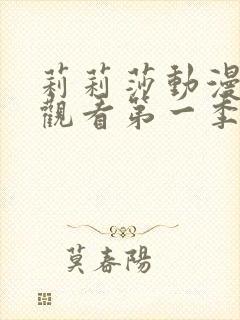 莉莉莎動漫
觀看第一季
莫春陽